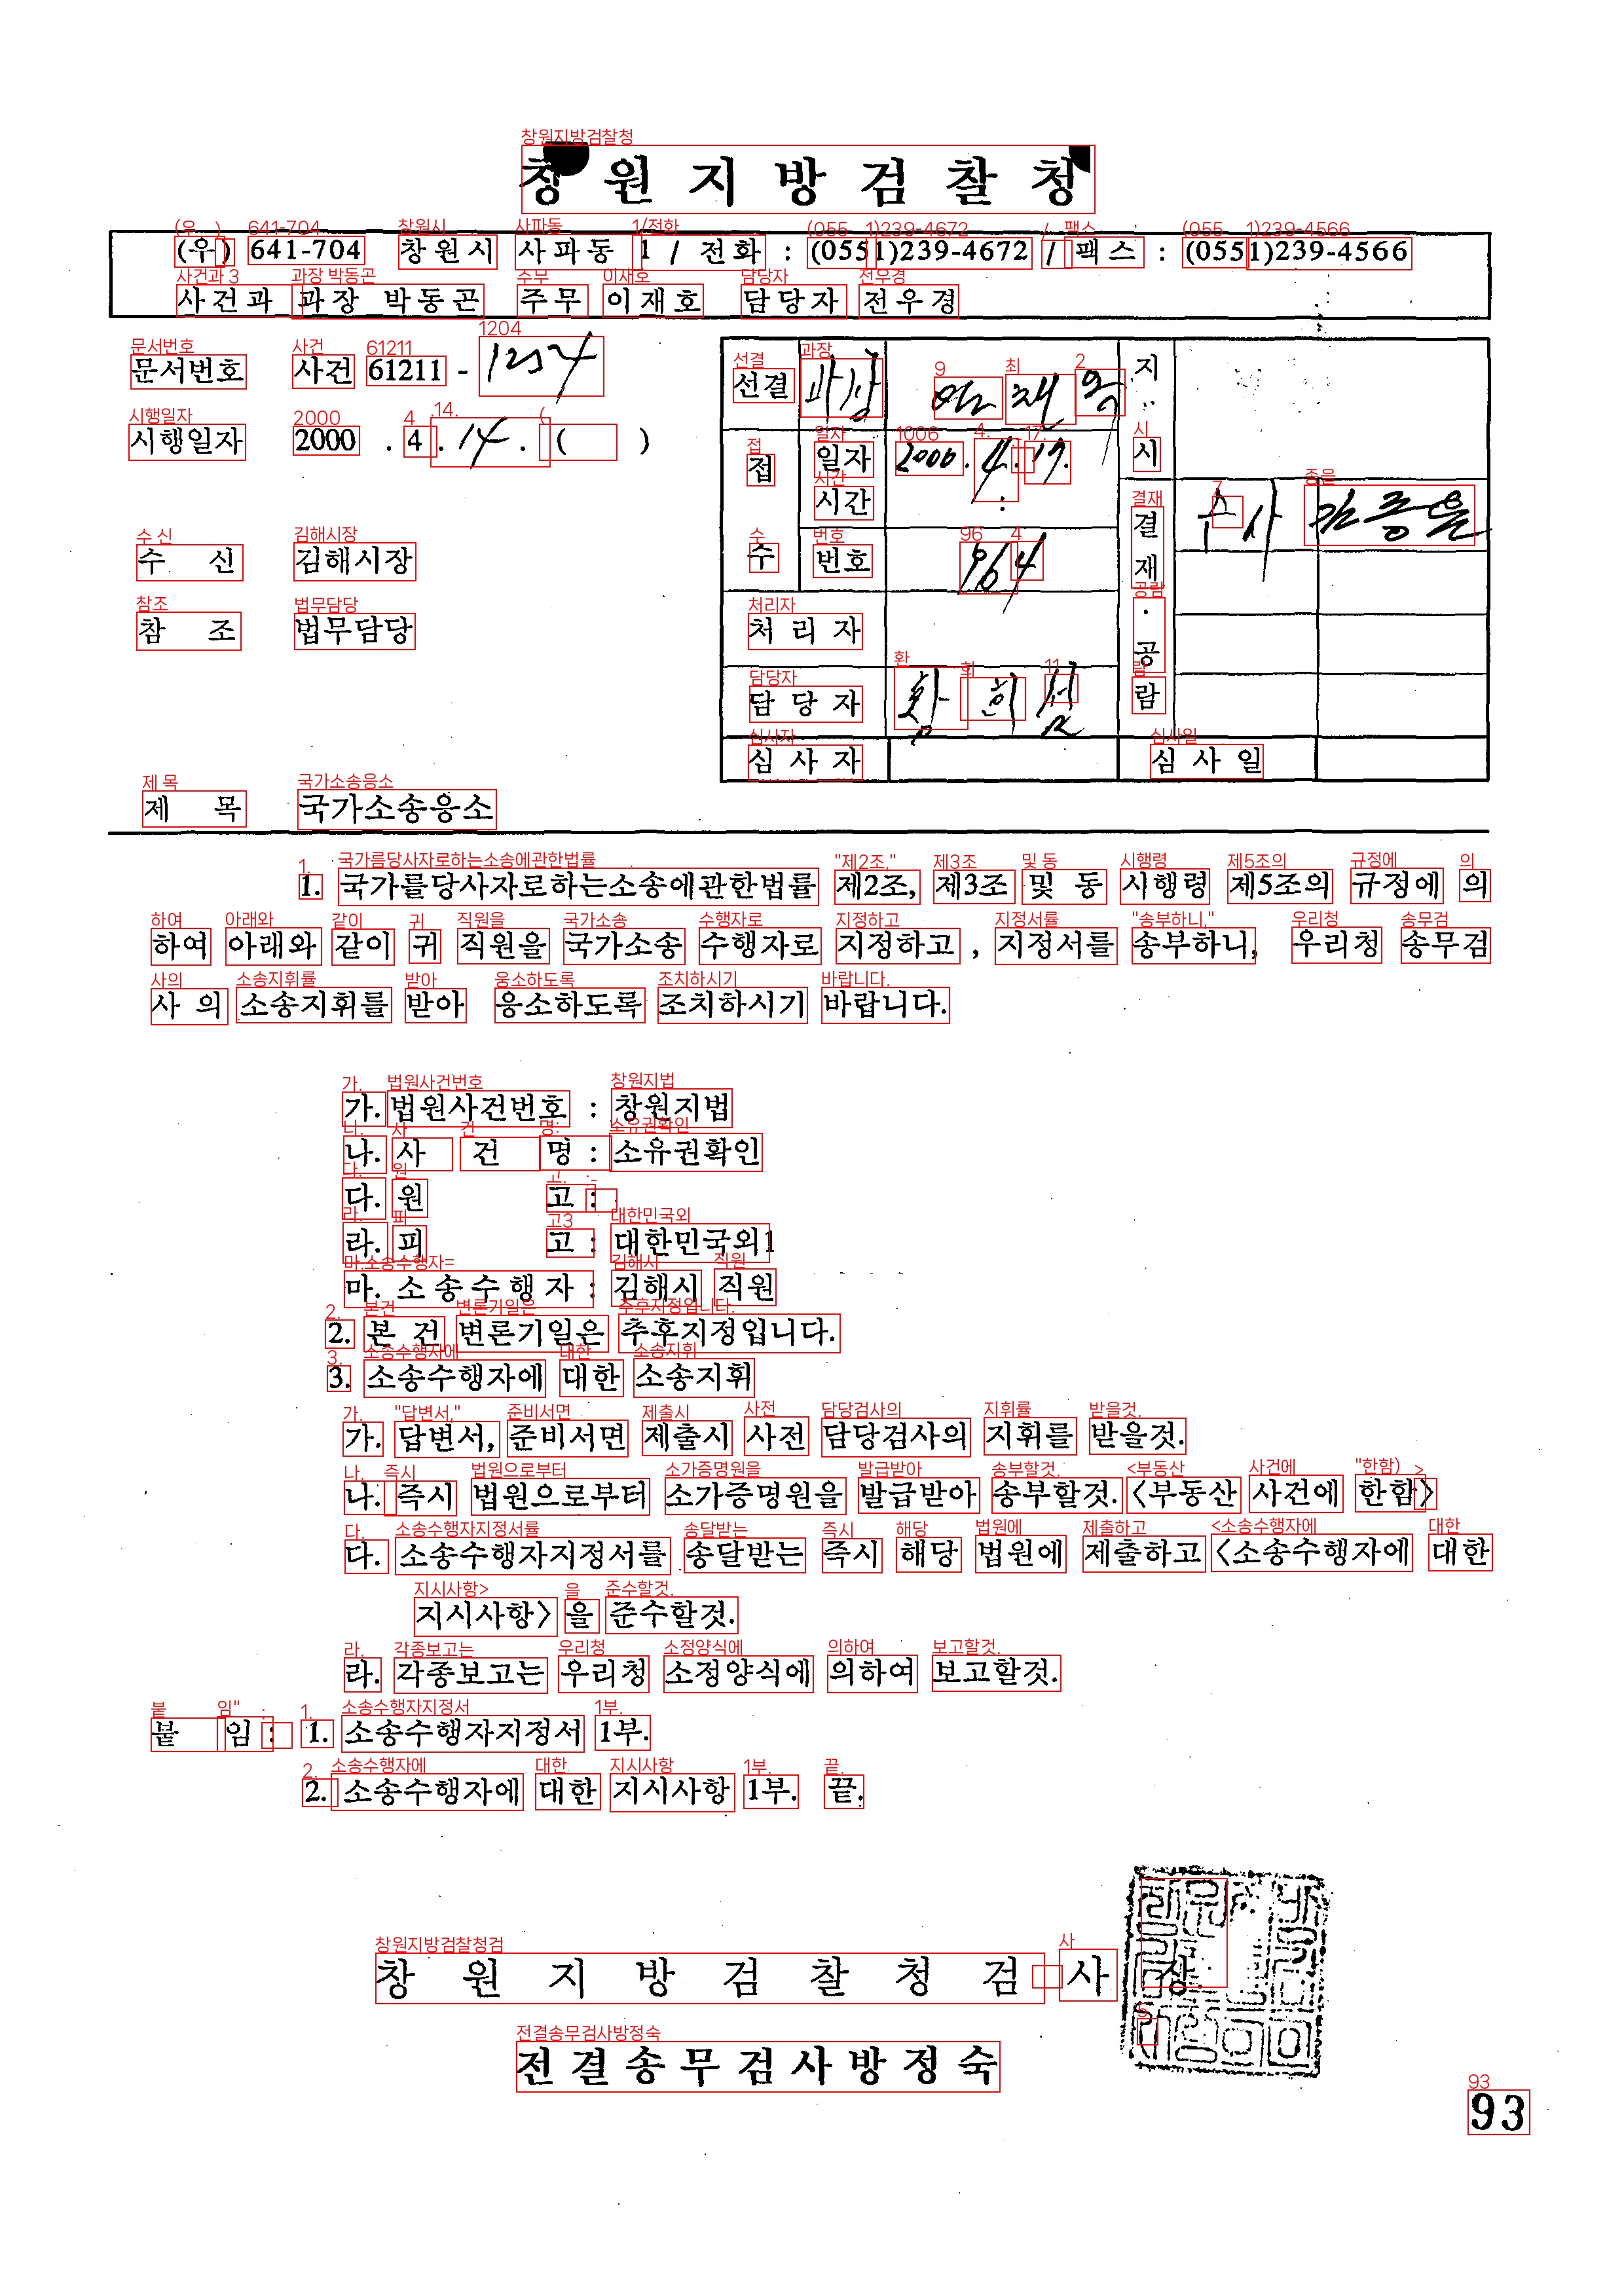 창원지방검찰청
(우) 641-704 창원시 사파동 1 / 전화 : (0551)239-4672 / 팩스 : (0551)239-4566
사건과 과장 박동곤 주무 이재호 담당자 전우경
문서번호 사건 61211 - 1254
시행일자 2000 . 4 . 14 . ( )
수 신 김해시장
참 조 법무담당
선결 과장 지시
접수 일자 2000 . 4 . 17.
시간 :
번호 964
결재 · 공람
처리자
담당자
심사자 심사일
제 목 국가소송응소
1. 국가를당사자로하는소송에관한법률 제2조, 제3조 및 동 시행령 제5조의 규정에 의
하여 아래와 같이 귀 직원을 국가소송 수행자로 지정하고 , 지정서를 송부하니, 우리청 송무검
사의 소송지휘를 받아 응소하도록 조치하시기 바랍니다.
가. 법원사건번호 : 창원지법
나. 사 건 명 : 소유권확인
다. 원 고 :
라. 피 고 : 대한민국외1
마. 소송수행자 : 김해시 직원
2. 본 건 변론기일은 추후지정입니다.
3. 소송수행자에 대한 소송지휘
가. 답변서, 준비서면 제출시 사전 담당검사의 지휘를 받을것.
나. 즉시 법원으로부터 소가증명원을 발급받아 송부할것. 〈부동산 사건에 한함〉
다. 소송수행자지정서를 송달받는 즉시 해당 법원에 제출하고 〈소송수행자에 대한
지시사항〉을 준수할것.
라. 각종보고는 우리청 소정양식에 의하여 보고할것.
붙 임 : 1. 소송수행자지정서 1부.
2. 소송수행자에 대한 지시사항 1부. 끝.
창원지방검찰청검사장
전결송무검사방정숙
93